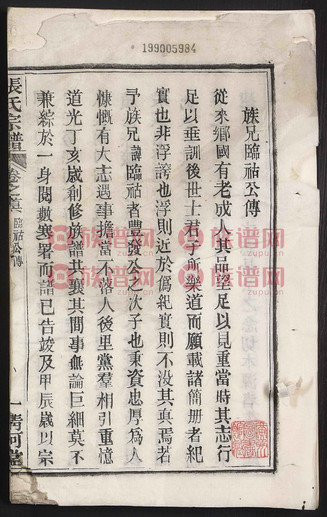 199005984
族兄臨祜公傳
從來鄉國有老成人其品望足以見重當時其志行
足以垂訓後世士君子所樂道而願載諸簡册者紀
實也非浮誇也浮則近於僞紀實則不没其眞焉若
予族兄諱臨祜者豊發公之次子也秉資忠厚爲人
慷慨有大志遇事擔當不落人後里黨羣相引重憶
道光丁亥歲創修族譜其襄其間事無論巨細莫不
兼綜於一身閱數寒暑而譜已告竣及甲辰歲以宗
張氏宗譜
卷之
臨祜公傳
一
清河堂
族谱网
zupu.cn